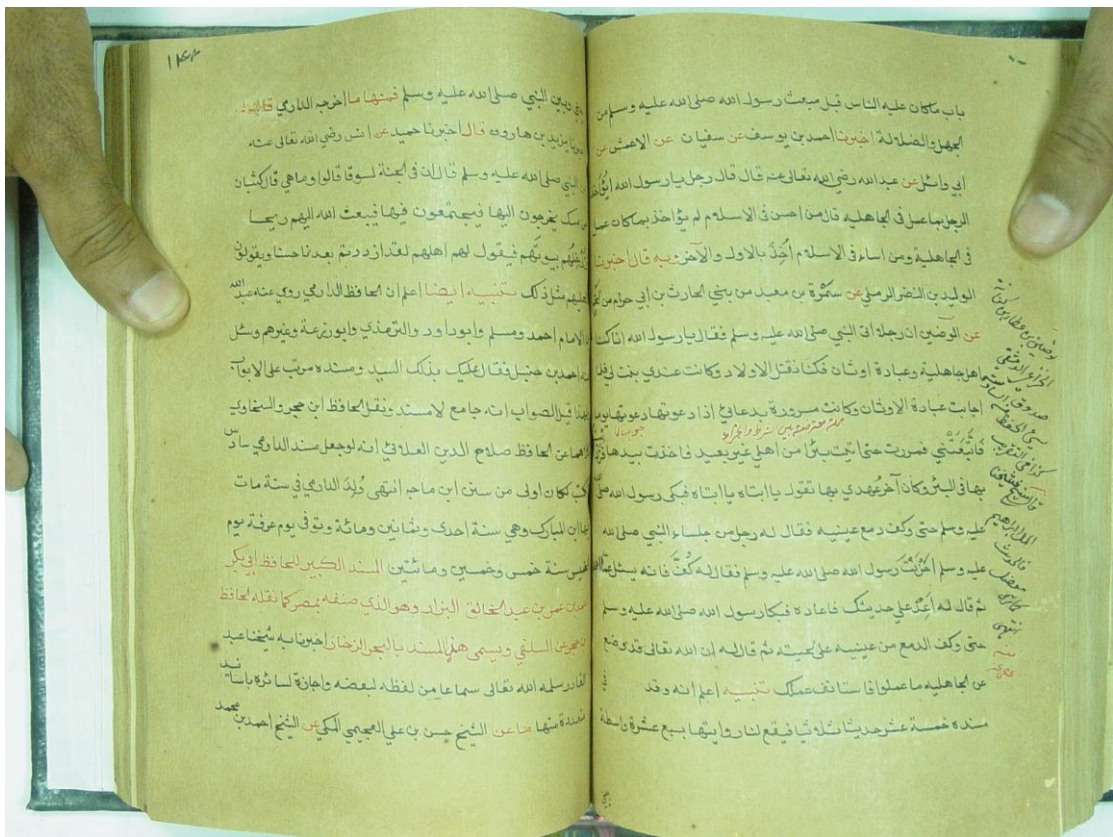 باب ماكان عليه الناس قبل مبعث رسول الله صلى الله عليه وسلم من
الجهل والضلالة اخبرنا احمد بن يوسف عن سفيان عن الاعمش عن
ابي وائل عن عبد الله رضي الله تعالى عنه قال قال رجل يا رسول الله ايؤاخذ
الرجل بما عمل في الجاهلية قال من احسن في الاسلام لم يؤاخذ بماكان عمل
في الجاهلية ومن اساء في الاسلام أُخِذَ بالاول والآخر وبه قال اخبرنا
الوليد بن النضر الرملي عن سمرة بن معبد من بني الحارث بن ابي حرام من
عن الوضين ان رجلا اتى النبي صلى الله عليه وسلم فقال يا رسول الله اناكنا
اهل جاهلية وعبادة اوثان فكنا نقتل الاولاد وكانت عندي بنت لي فلما
اجابت عبادة الاوثان وكانت مسرورة بدعائي اذا دعوتها دعوتها يوما
فاتبعتني فمررت حتى اتيت بئرا من اهلي غير بعيد فاخذت بيدها
بها في البئر وكان آخر عهدي بها تقول يا ابتاه يا ابتاه فبكى رسول الله صلى
عليه وسلم حتى وكف دمع عينيه فقال له رجل من جلساء النبي صلى الله
عليه وسلم احزنت رسول الله صلى الله عليه وسلم فقال له كُفَّ فانه يسئل عما
ثم قال له اَعِدْ علي حديثك فاعاده فبكا رسول الله صلى الله عليه وسلم
حتى وكف الدمع من عينيه على لحيته ثم قال له ان الله تعالى قد وضع
عن الجاهلية ما عملوا فاستانف عملك تنبيه اعلم انه وقد في
مسنده خمسة عشر حديثا ثلاثيا فيقع لنا روايتها بسبع عشرة واسطة
بيني وبين النبي صلى الله عليه وسلم فمنها ما اخرجه الدارمي قال
يزيد بن هارون قال اخبرنا حميد عن انس رضي الله تعالى عنه
النبي صلى الله عليه وسلم قال ان في الجنة لسوقا قالوا وما هي قال كثبان
من مسك يخرجون اليها فيجتمعون فيها فيبعث الله اليهم ريحا
بيوتهم فيقول لهم اهلهم لقد ازددتم بعدنا حسنا ويقولون
لاهليهم مثل ذلك تنبيه ايضا اعلم ان الحافظ الدارمي روي عنه عبد الله
الامام احمد ومسلم وابو داود والترمذي وابو زرعة وغيرهم وسئل
احمد بن حنبل فقال عليك بذلك السيد ومسنده مرتب على الابواب
قيل الصواب انه جامع لا مسند ونقل الحافظ ابن حجر والسخاوي
عن الحافظ صلاح الدين العلائي انه لو جعل مسند الدارمي سادس
كتب لكان اولى من سنن ابن ماجه انتهى وُلِدَ الدارمي في سنة مات
بها ابن المبارك وهي سنة احدى وثمانين ومائة وتوفي يوم عرفة يوم
سنة خمس وخمسين ومائتين المسند الكبير للحافظ ابي بكر
احمد بن عمر بن عبد الخالق البزار وهو الذي صنفه بمصر كما نقله الحافظ
عن السلفي ويسمى هذا المسند بالبحر الزخار اخبرنا به شيخنا عبد
القادر سلمه الله تعالى سماعا من لفظه لبعضه واجازة لسائره باسانيد
متعددة منها عن الشيخ حسن بن علي العجيمي المكي عن الشيخ احمد بن محمد